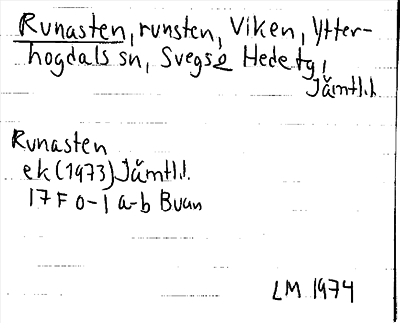 Runasten, runsten, Viken, Ytter-
hogdals sn, Svegs o Hede tg,
Jämtl.l.
Runasten
ek (1973) Jämtl.l.
17 F 0-1 a-b Buan
LM 1974